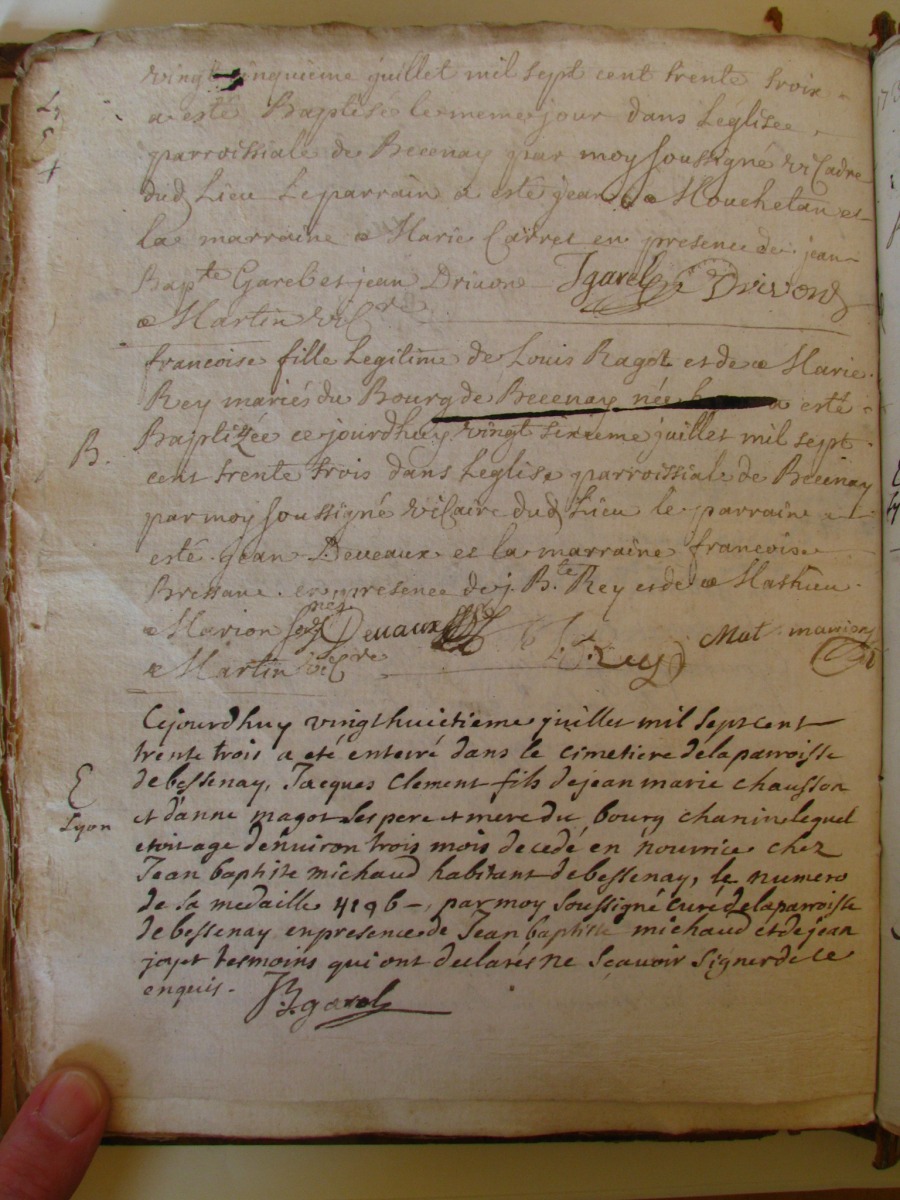 vingt cinquieme juillet mil sept cent trente trois
a esté Baptisé le meme jour dans Leglisee
parroissiale de Becenay par moy soussigné viCaire
dud Lieu Le parrain a esté jean Mouchelan et
la marraine Marie Carret en presence de jean
Bapte Garel et jean Drivon JGarel Drivond
Martin viCre
francoise fille Legitime de Louis Ragot et de Marie
Rey mariés du Bourg de Becenay née a esté
B. Baptizée ce jourdhuy vingt sixieme juillet mil sept
cent trente trois dans Leglise parroissiale de Becenay
par moy soussigné viCaire dud Lieu le parrain a
esté jean Deveaux et la marraine francoise
Bressane en presence de j. Bte Rey et de Mathieu
Marion Devaux Rey Mat marion
Martin viCre
Cejourdhuy vingt huictieme juillet mil sept cent
trente trois a eté enterré dans le cimetiere de la parroisse
E de bessenay, Jacques Clement fils de jean marie chausson
Lyon et d'anne magot ses pere et mere du bourg chanin lequel
etoit age d'environ trois mois decedé en nourrice chez
Jean baptiste michaud habitant de bessenay, le numero
de sa medaille 4196 - par moy soussigné curé de la parroisse
de bessenay en presence de Jean baptiste michaud et de jean
joyet tesmoins qui ont declarés ne scavoir signer de ce
enquis. JB garel